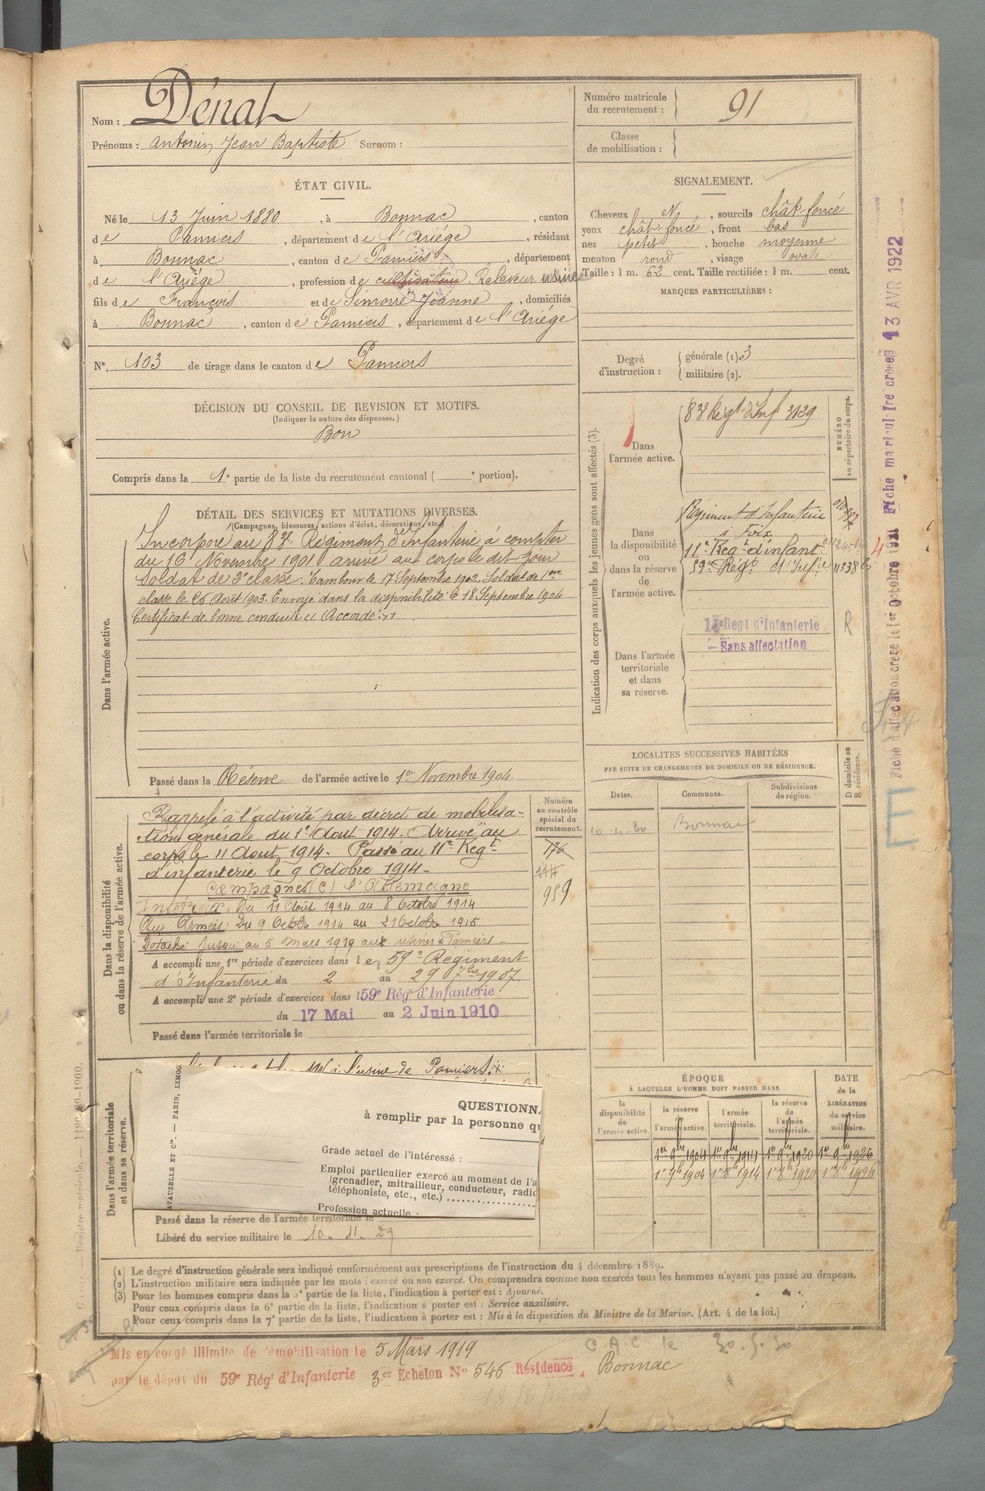 Nom : Dénat
Prénoms : Antonin Jean Baptiste Surnom :
Numéro matricule du recrutement : 91
Classe de mobilisation :
ÉTAT CIVIL.
Né le 13 Juin 1880, à Bonnac, canton
de Pamiers, département de l'Ariége, résidant
à Bonnac, canton de Pamiers, département
de l'Ariége, profession de cultivateur Releveur usine
fils de François et de Simorre Jeanne, domiciliés
à Bonnac, canton de Pamiers, département de l'Ariége
N° 103 de tirage dans le canton de Pamiers
SIGNALEMENT.
Cheveux N, sourcils chât foncé
yeux chât foncé, front bas
nez petit, bouche moyenne
menton rond, visage ovale
Taille : 1 m. 62 cent. Taille rectifiée : 1 m. cent.
MARQUES PARTICULIÈRES :
Degré d'instruction : générale (1) 3
militaire (2).
DÉCISION DU CONSEIL DE REVISION ET MOTIFS.
(Indiquer la nature des dispenses.)
Bon
Compris dans la 1e partie de la liste du recrutement cantonal ( e portion).
DÉTAIL DES SERVICES ET MUTATIONS DIVERSES.
(Campagnes, blessures, actions d'éclat, décorations, etc.)
Dans l'armée active.
Incorporé au 83e Régiment d'Infanterie à compter
du 16 Novembre 1901 arrivé au corps le dit jour
soldat de 2e classe. Tambour le 17 Septembre 1902. Soldat de 1ere
classe le 26 Août 1903. Envoyé dans la disponibilité le 18 Septembre 1904
Certificat de bonne conduite "Accordé"
Passé dans la Réserve de l'armée active le 1er Novembre 1904
Indication des corps auxquels les jeunes gens sont affectés (3).
NUMÉRO au répertoire du corps.
Dans l'armée active.
83e Régt d'Inf 3129
Dans la disponibilité ou dans la réserve de l'armée active.
Régiment d'Infanterie
à Foix
11e Regt d'infant
59me Régt d'Infie
Dans l'armée territoriale et dans sa réserve.
Regt d'Infanterie
Sans affectation
R
Fiche matricule créée 13 AVR 1922
Fiche d'affectation créée le 1er Octobre 1921
LOCALITES SUCCESSIVES HABITÉES
PAR SUITE DE CHANGEMENTS DE DOMICILE OU DE RÉSIDENCE.
Dates. Communes. Subdivisions de région. D domicile ou R résidence.
Bonnac
Dans la disponibilité ou dans la réserve de l'armée active.
Numéro au contrôle spécial du recrutement.
176
959
Rappelé à l'activité par décret de mobilisa-
tion générale du 1er Aout 1914. Arrivé au
corps le 11 Aout 1914. Passé au 11e Regt
d'infanterie le 9 Octobre 1914.
Campagnes (C) l'Allemagne
Intérieur Du 11 Août 1914 au 8 Octobre 1914
Aux Armées: Du 9 Octobre 1914 au 21 Octobre 1915
Détaché jusqu'au 5 mars 1919 aux usines à Pamiers
A accompli une 1re période d'exercices dans le 59e Regiment
d'Infanterie du 2 au 29 7bre 1907
A accompli une 2e période d'exercices dans l 59e Rég.t d'Infanterie
du 17 Mai au 2 Juin 1910
Passé dans l'armée territoriale le
Dans l'armée territoriale et dans sa réserve.
l'usine de Pamiers.
LAVAUZELLE ET Cie. — PARIS, LIMOG
QUESTIONN
à remplir par la personne qu
Grade actuel de l'intéressé :
Emploi particulier exercé au moment de l'a
(grenadier, mitrailleur, conducteur, radio
téléphoniste, etc., etc.)
Profession actuelle :
Passé dans la réserve de l'armée territoriale le
Libéré du service militaire le 10-11-29
ÉPOQUE
À LAQUELLE L'HOMME DOIT PASSER DANS
DATE de la LIBÉRATION du service militaire.
la disponibilité de l'armée active. la réserve de l'armée active. l'armée territoriale. la réserve de l'armée territoriale.
1er 9bre 1904 1er 9bre 1914 1er 9bre 1920 1er 9bre 1926
1er 8bre 1904 1er 8bre 1914 1er 8bre 1920 1er 8bre 1926
(1) Le degré d'instruction générale sera indiqué conformément aux prescriptions de l'instruction du 4 décembre 1889.
(2) L'instruction militaire sera indiquée par les mots : exercé ou non exercé. On comprendra comme non exercés tous les hommes n'ayant pas passé au drapeau.
(3) Pour les hommes compris dans la 5e partie de la liste, l'indication à porter est : Ajourné.
Pour ceux compris dans la 6e partie de la liste, l'indication à porter est : Service auxiliaire.
Pour ceux compris dans la 7e partie de la liste, l'indication à porter est : Mis à la disposition du Ministre de la Marine. (Art. 4 de la loi.)
Mis en congé illimité de démobilisation le 5 Mars 1919
C.A.C. le 30.5.30
par le dépôt du 59e Rég.t d'Infanterie 3er Echelon N° 546 Résidence Bonnac